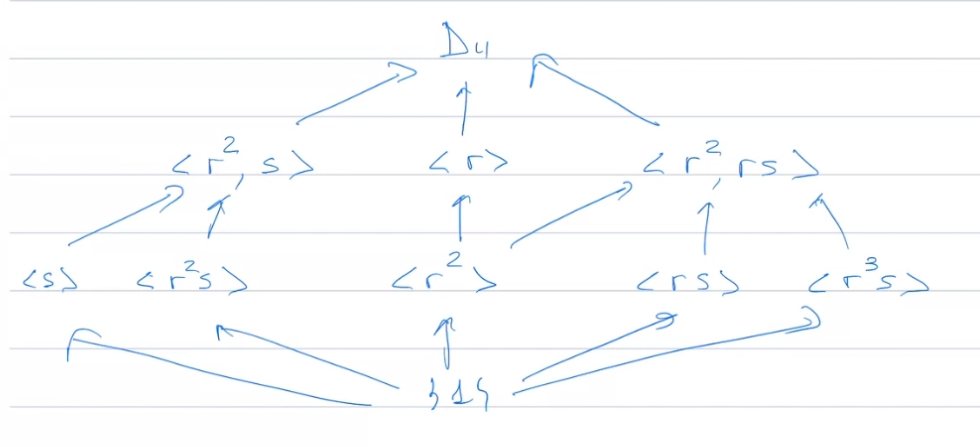 D₄
<r², s> <r> <r², rs>
<s> <r²s> <r²> <rs> <r³s>
{1}